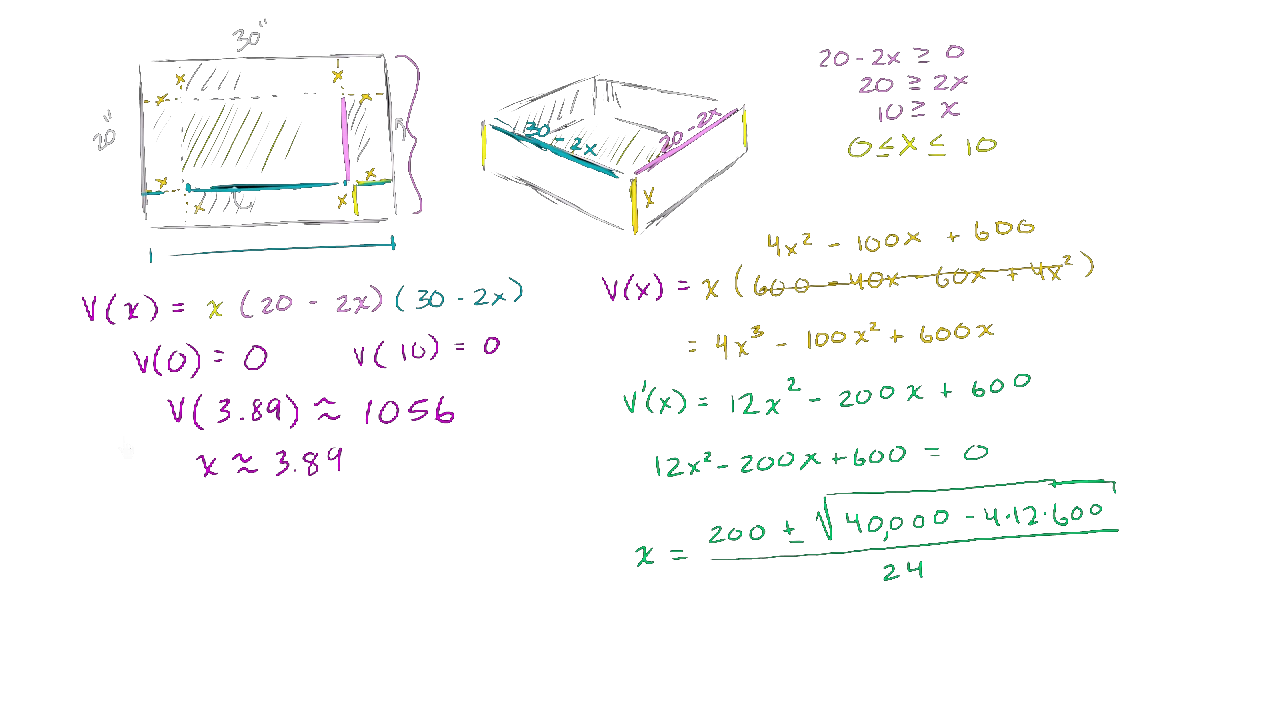 30"
20"
x x
x x
x x
x x
30 - 2x
20 - 2x
x
20 - 2x ≥ 0
20 ≥ 2x
10 ≥ x
0 ≤ x ≤ 10
V(x) = x (20 - 2x)(30 - 2x)
V(0) = 0 V(10) = 0
V(3.89) ≈ 1056
x ≈ 3.89
4x² - 100x + 600
V(x) = x (600 - 40x - 60x + 4x²)
= 4x³ - 100x² + 600x
V'(x) = 12x² - 200x + 600
12x² - 200x + 600 = 0
x = (200 ± √(40,000 - 4·12·600)) / 24